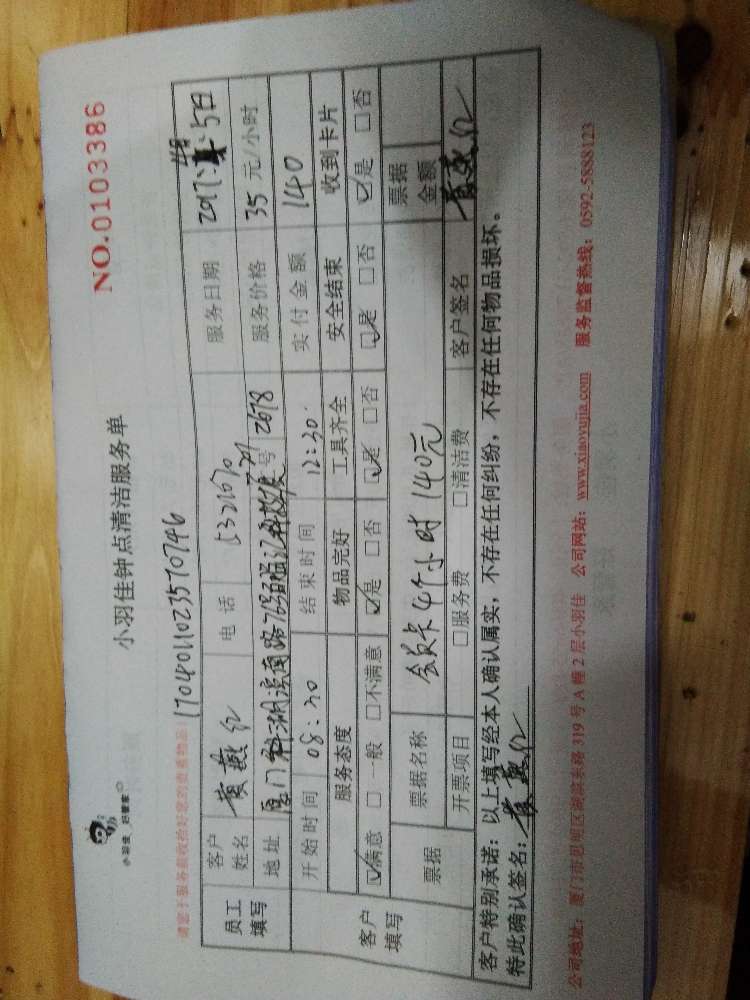 小羽佳·好管家
NO.0103386
小羽佳钟点清洁服务单
请您于服务前收拾好您的贵重物品!
1704011023570746
员工填写 客户姓名 黄燕红 电话 5321670 服务日期 2017 5日
地址 厦门 湖滨南路 号 2678 服务价格 35 元/小时
开始时间 08:30 结束时间 12:30 实付金额 140
客户填写 服务态度 物品完好 工具齐全 安全结束 收到卡片
☑满意 □一般 □不满意 ☑是 □否 ☑是 □否 ☑是 □否 ☑是 □否
票据 票据名称 会员卡4个小时140元 票据金额
开票项目 □服务费 □清洁费 客户签名 黄燕红
客户特别承诺:以上填写经本人确认属实,不存在任何纠纷,不存在任何物品损坏。
特此确认签名:黄燕红
公司地址:厦门市思明区湖滨东路319号A幢2层小羽佳 公司网站:www.xiaoyujia.com 服务监督热线:0592-5888123